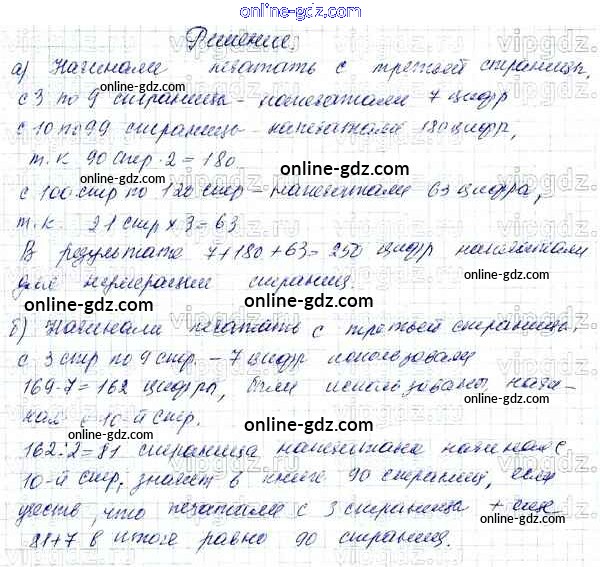 online-gdz.com
Решение.
а) Начинали печатать с третьей страницы,
с 3 по 9 страницы - напечатали 7 цифр
с 10 по 99 страницы - напечатали 180 цифр,
т.к 90 стр · 2 = 180
online-gdz.com
с 100 стр по 120 стр - напечатали 63 цифра,
т.к. 21 стр x 3 = 63
online-gdz.com
В результате 7+180+63=250 цифр напечатали
для нумерации страниц.
online-gdz.com
online-gdz.com
б) Начинали печатать с третьей страницы,
с 3 стр по 9 стр. - 7 цифр использовали
169-7=162 цифра, были использованы начи-
ная с 10-й стр.
online-gdz.com
162:2=81 страница напечатана начиная с
10-й стр, значит в книге 90 страниц, если
учесть, что печатали с 3 страницы + еще
online-gdz.com
81+7 в итоге равно 90 страниц.
online-gdz.com